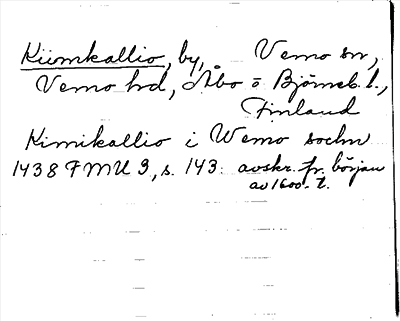 Kiimkallio, by, Vemo sn,
Vemo hd, Åbo o Björneb. l.,
Finland
Kimikallio i Wemo sochn
1438 FMU 3, s. 143. avskr. fr. början
av 1600-t.